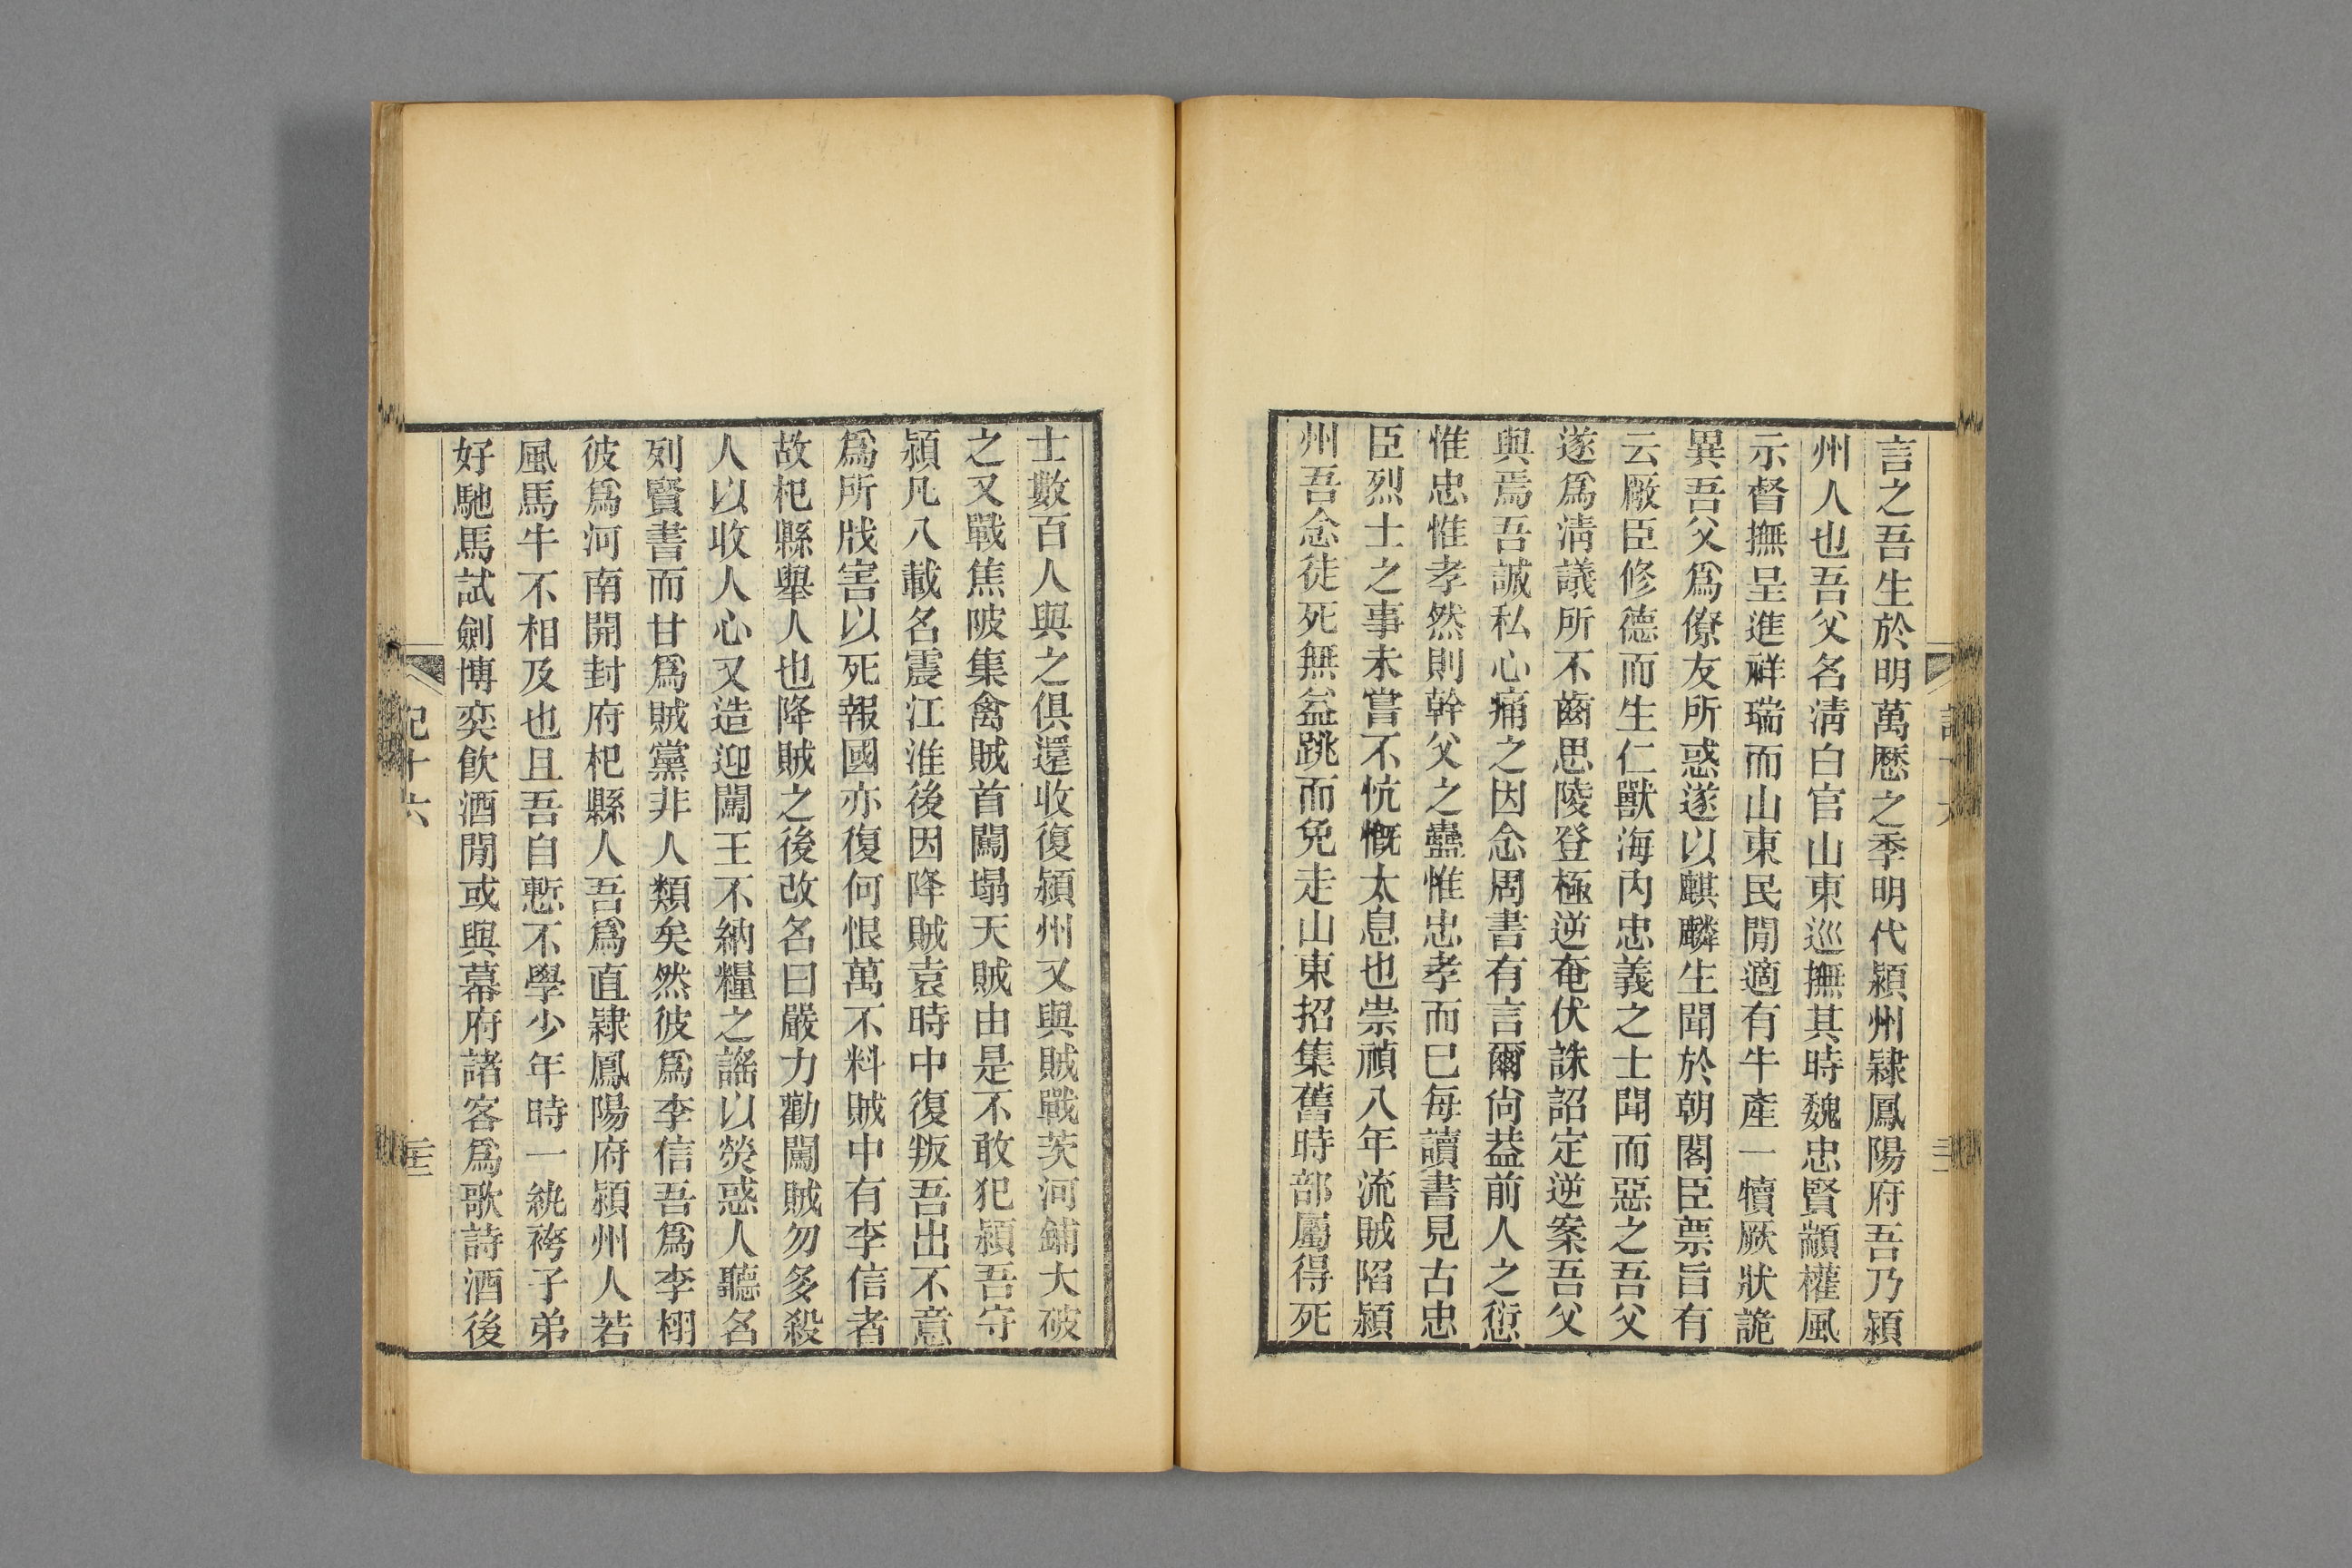 言之吾生於明萬歷之季明代潁州隷鳳陽府吾乃潁
州人也吾父名淸白官山東巡撫其時魏忠賢顓權風
示督撫呈進祥瑞而山東民閒適有牛產一犢厥狀詭
異吾父爲僚友所惑遂以麒麟生聞於朝閣臣票旨有
云厰臣修德而生仁獸海內忠義之士聞而惡之吾父
遂爲淸議所不齒思陵登極逆奄伏誅詔定逆案吾父
與焉吾誠私心痛之因念周書有言爾尙葢前人之愆
惟忠惟孝然則幹父之蠱惟忠孝而已每讀書見古忠
臣烈士之事未嘗不忼慨太息也崇禎八年流賊陷潁
州吾念徒死無益跳而免走山東招集舊時部屬得死
士數百人與之俱還收復潁州又與賊戰茨河鋪大破
之又戰焦陂集禽賊首闖塌天賊由是不敢犯潁吾守
潁凡八載名震江淮後因降賊袁時中復叛吾出不意
爲所戕害以死報國亦復何恨萬不料賊中有李信者
故杞縣舉人也降賊之後改名曰嚴力勸闖賊勿多殺
人以收人心又造迎闖王不納糧之謠以熒惑人聽名
列賢書而甘爲賊黨非人類矣然彼爲李信吾爲李栩
彼爲河南開封府杞縣人吾爲直隷鳳陽府潁州人若
風馬牛不相及也且吾自慙不學少年時一紈袴子弟
好馳馬試劍博奕飮酒閒或與幕府諸客爲歌詩酒後
記十六